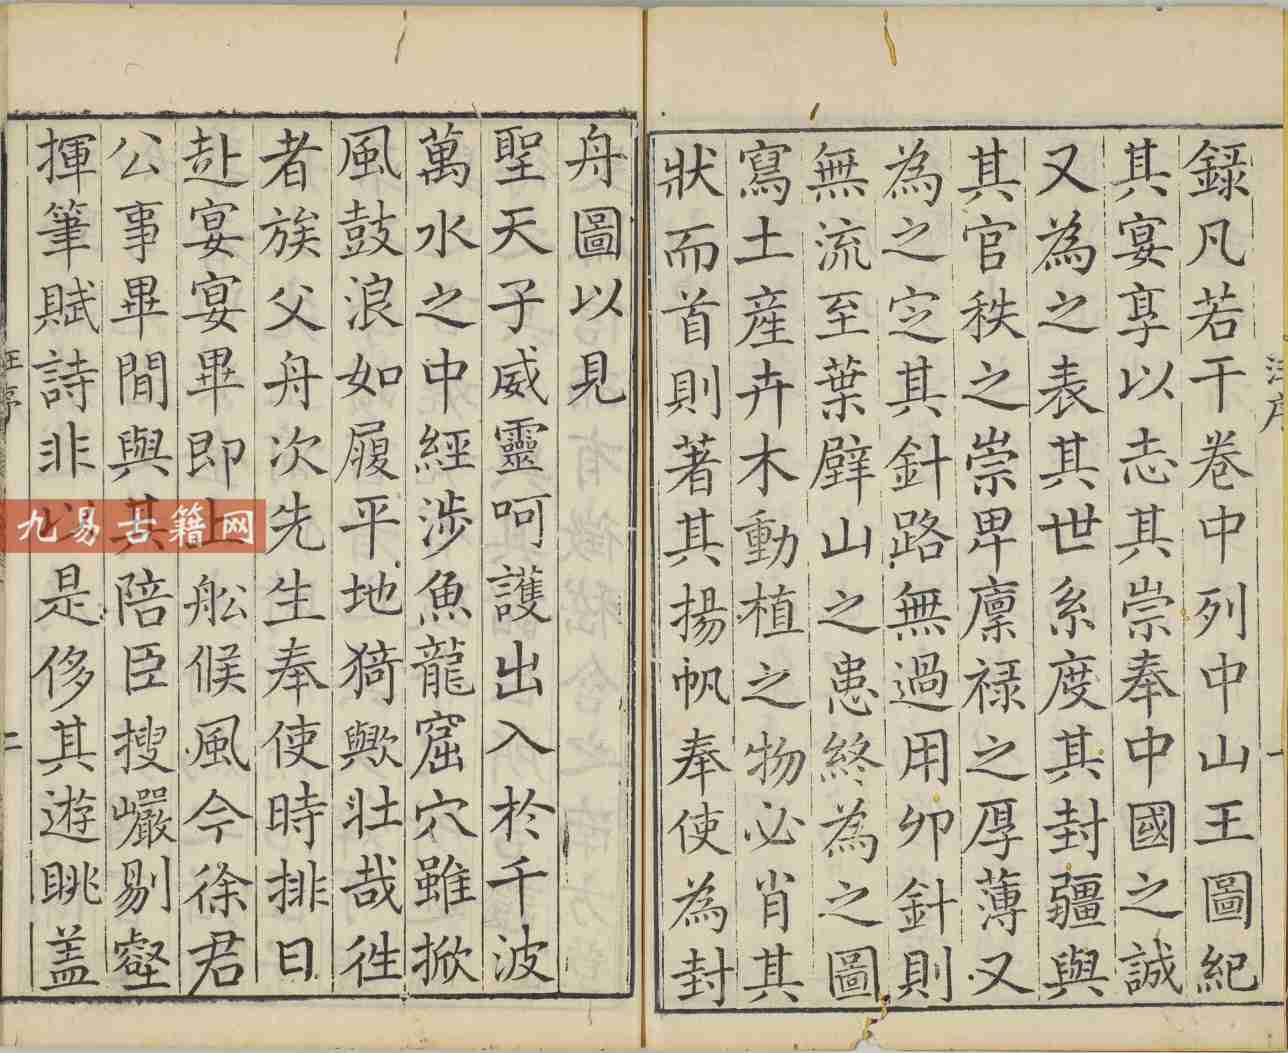 錄凡若干卷中列中山王圖紀
其宴享以志其崇奉中國之誠
又為之表其世系度其封疆與
其官秩之崇卑廩祿之厚薄又
為之定其針路無過用卯針則
無流至葉壁山之患終為之圖
寫土産卉木動植之物必肖其
狀而首則著其揚帆奉使為封
舟圖以見
聖天子威靈呵護出入於千波
萬水之中經涉魚龍窟穴雖掀
風鼓浪如履平地猗歟壯哉徃
者族父舟次先生奉使時排日
赴宴宴畢即上舩候風今徐君
公事畢間與其陪臣搜巖剔壑
揮筆賦詩非以是侈其遊眺盖
汪序
二
九易古籍网